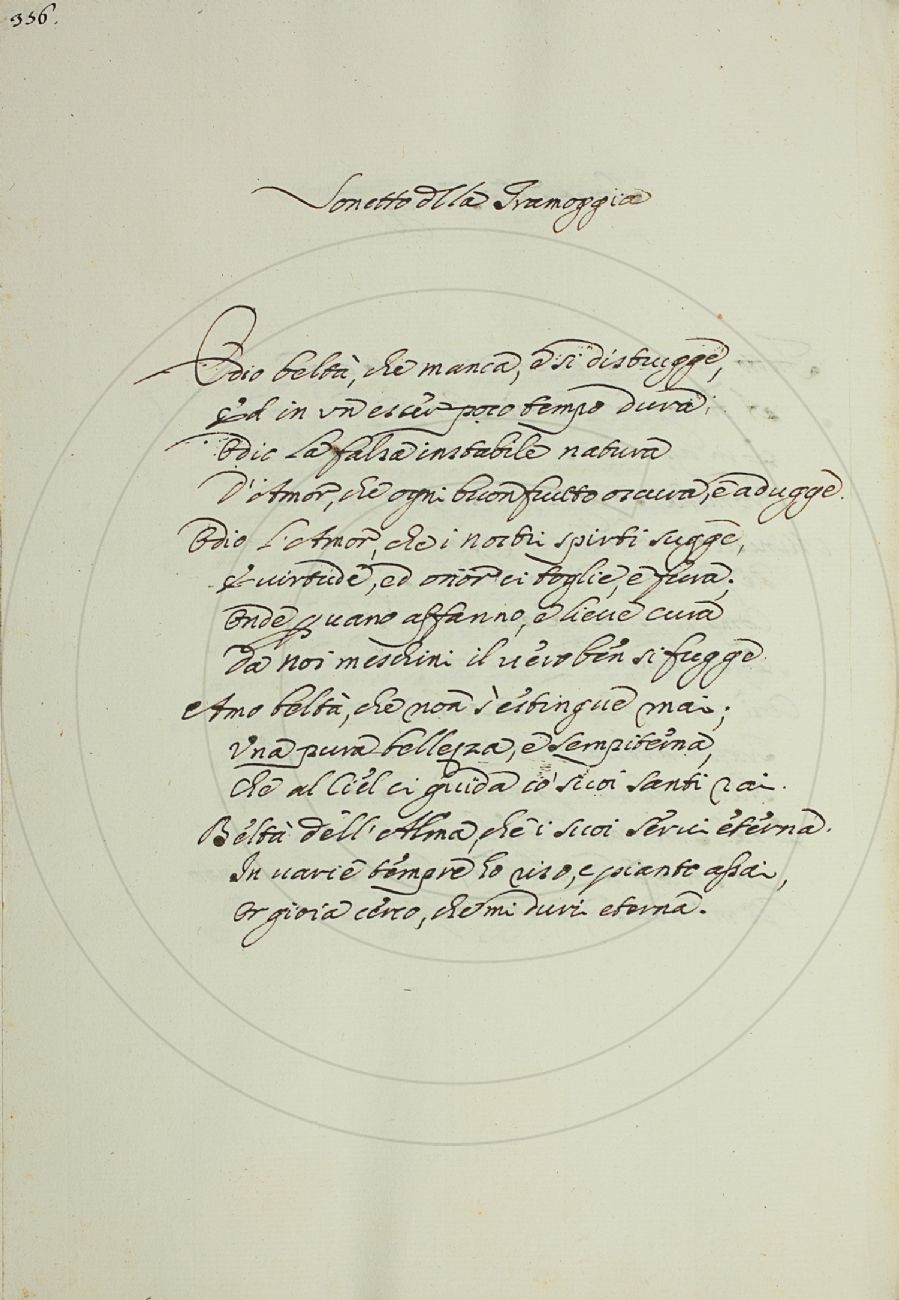 336.
Sonetto dlla Tramoggia
Odio beltà, che manca, e si distrugge,
Ed in un esser poco tempo dura;
Odio la falsa instabile natura
D'Amor, che ogni buon frutto oscura, e adugge.
Odio l'Amor, che i nostri spirti sugge,
E virtude, ed onor ci toglie, e fura;
Onde p vano affanno, e lieve cura
Da noi meschini il vero ben si fugge.
Amo beltà, che non s'estingue mai;
Una pura bellezza, e sempiterna,
Che al Ciel ci guida co' suoi santi rai.
Beltà dell'Alma, che i suoi servi eterna.
In varie tempre ho riso, e pianto assai,
Or gioia cerco, che mi duri eterna.